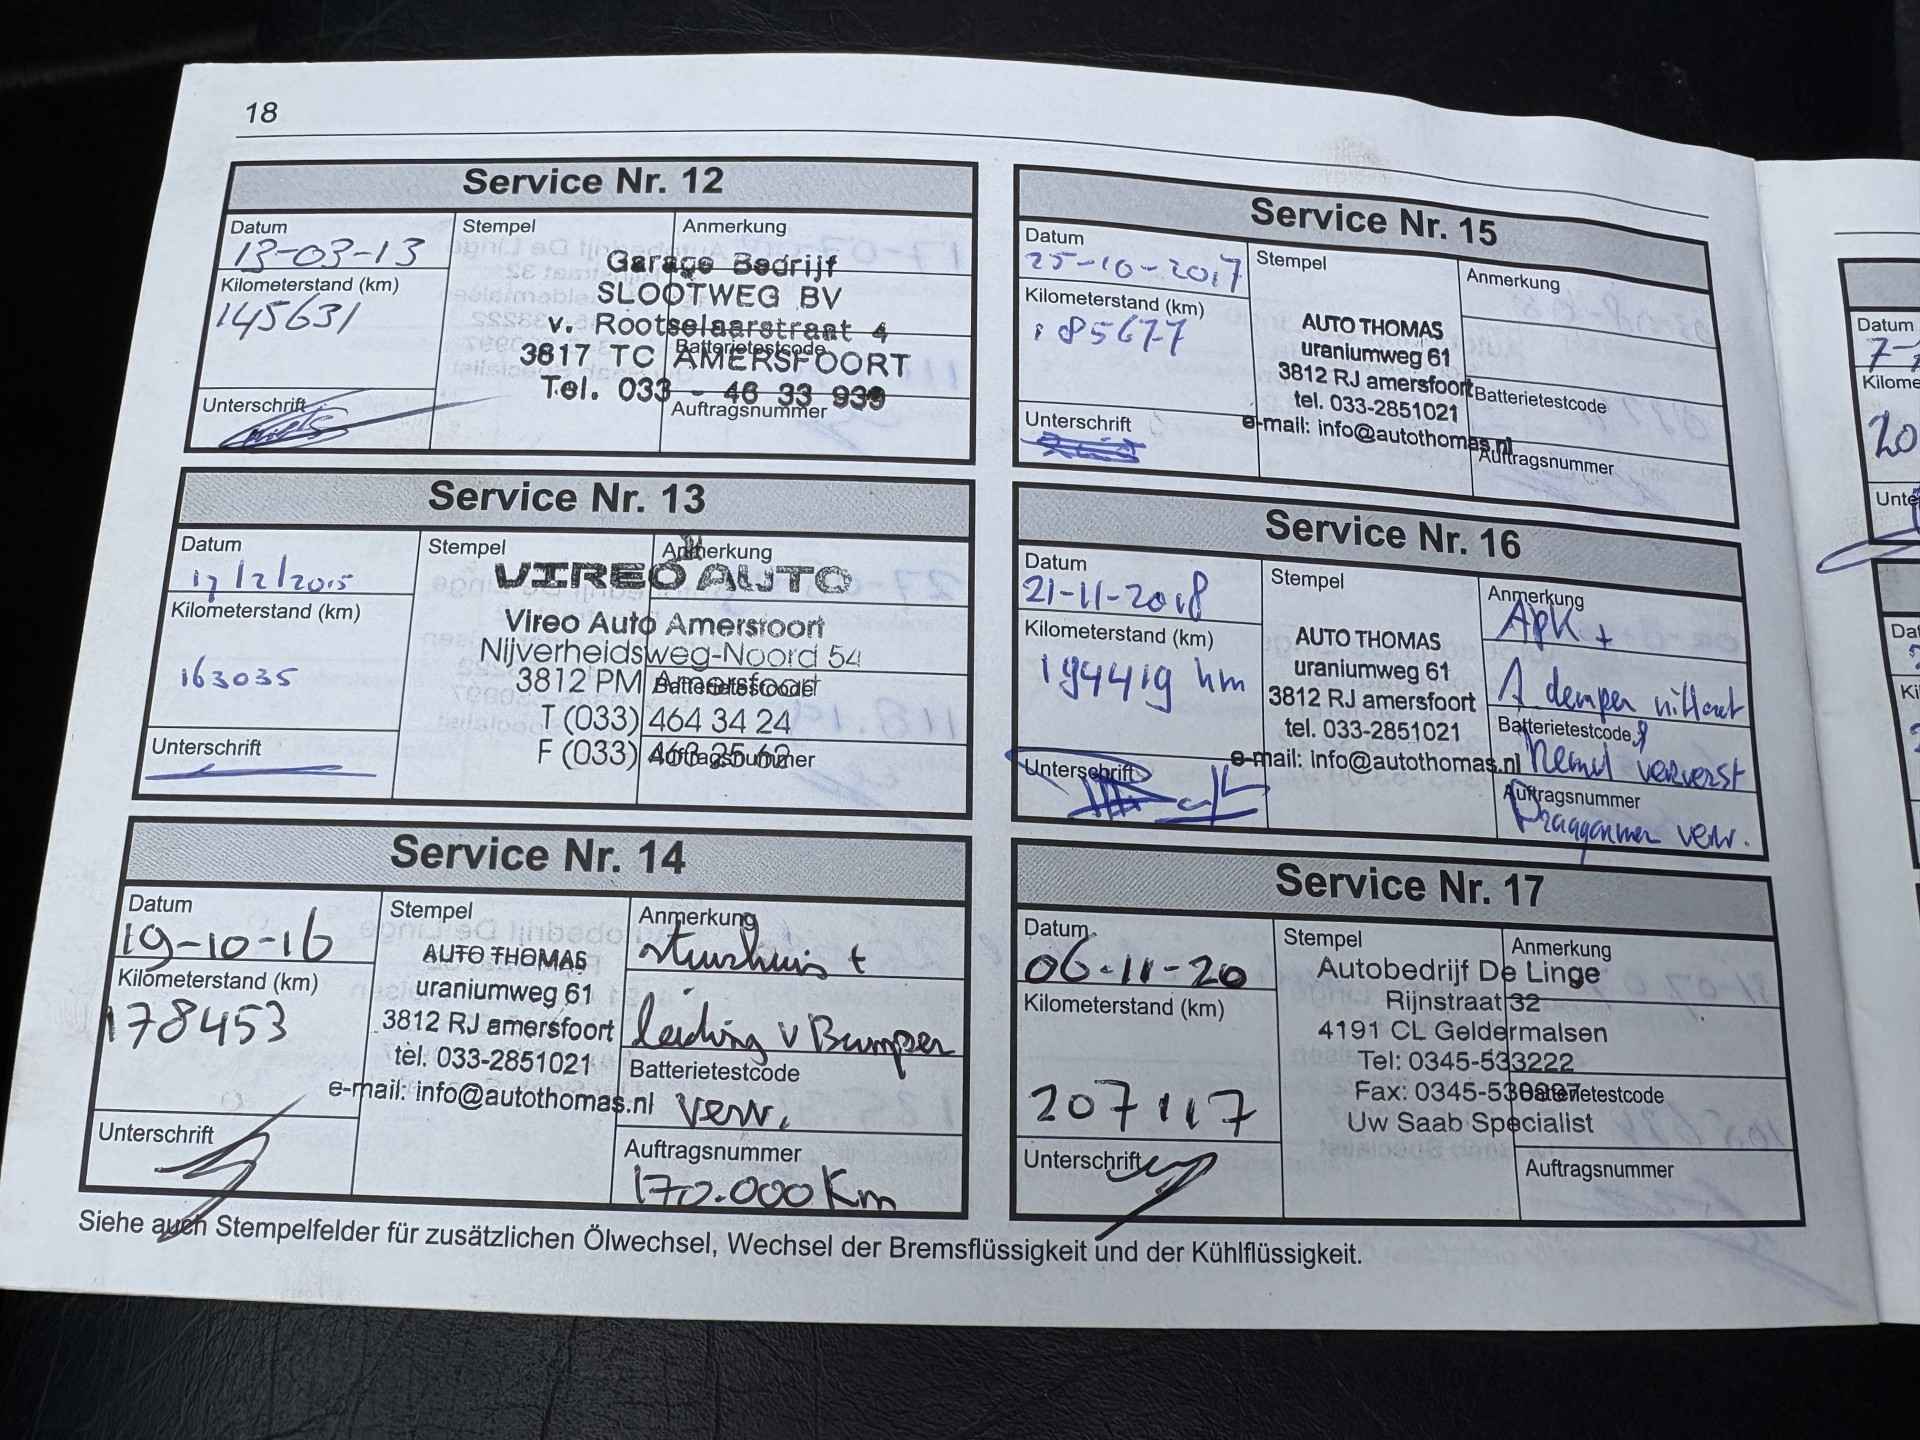 18
Service Nr. 12
Datum
13-03-13
Kilometerstand (km)
145631
Unterschrift
Stempel
Garage Bedrijf
SLOOTWEG BV
v. Rootselaarstraat 4
3817 TC AMERSFOORT
Tel. 033 - 46 33 939
Anmerkung
Batterietestcode
Auftragsnummer
Service Nr. 13
Datum
17/2/2015
Kilometerstand (km)
163035
Unterschrift
Stempel
VIREO AUTO
Vireo Auto Amersfoort
Nijverheidsweg-Noord 54
3812 PM Amersfoort
T (033) 464 34 24
F (033) 463 25 62
Anmerkung
Batterietestcode
Auftragsnummer
Service Nr. 14
Datum
19-10-16
Kilometerstand (km)
178453
Unterschrift
Stempel
AUTO THOMAS
uraniumweg 61
3812 RJ amersfoort
tel. 033-2851021
e-mail: info@autothomas.nl
Anmerkung
stuurhuis +
leiding v Bumper
Batterietestcode
verv.
Auftragsnummer
170.000 Km
Service Nr. 15
Datum
25-10-2017
Kilometerstand (km)
185677
Unterschrift
Stempel
AUTO THOMAS
uraniumweg 61
3812 RJ amersfoort
tel. 033-2851021
e-mail: info@autothomas.nl
Anmerkung
Batterietestcode
Auftragsnummer
Service Nr. 16
Datum
21-11-2018
Kilometerstand (km)
194419 km
Unterschrift
Stempel
AUTO THOMAS
uraniumweg 61
3812 RJ amersfoort
tel. 033-2851021
e-mail: info@autothomas.nl
Anmerkung
APK +
A demper uitlaat
Batterietestcode
ververst
Auftragsnummer
Draagarmen verv.
Service Nr. 17
Datum
06-11-20
Kilometerstand (km)
207117
Unterschrift
Stempel
Autobedrijf De Linge
Rijnstraat 32
4191 CL Geldermalsen
Tel: 0345-533222
Fax: 0345-530997
Uw Saab Specialist
Anmerkung
Batterietestcode
Auftragsnummer
Siehe auch Stempelfelder für zusätzlichen Ölwechsel, Wechsel der Bremsflüssigkeit und der Kühlflüssigkeit.
Datum
7-
Kilome
20
Unte
Dat
Ki